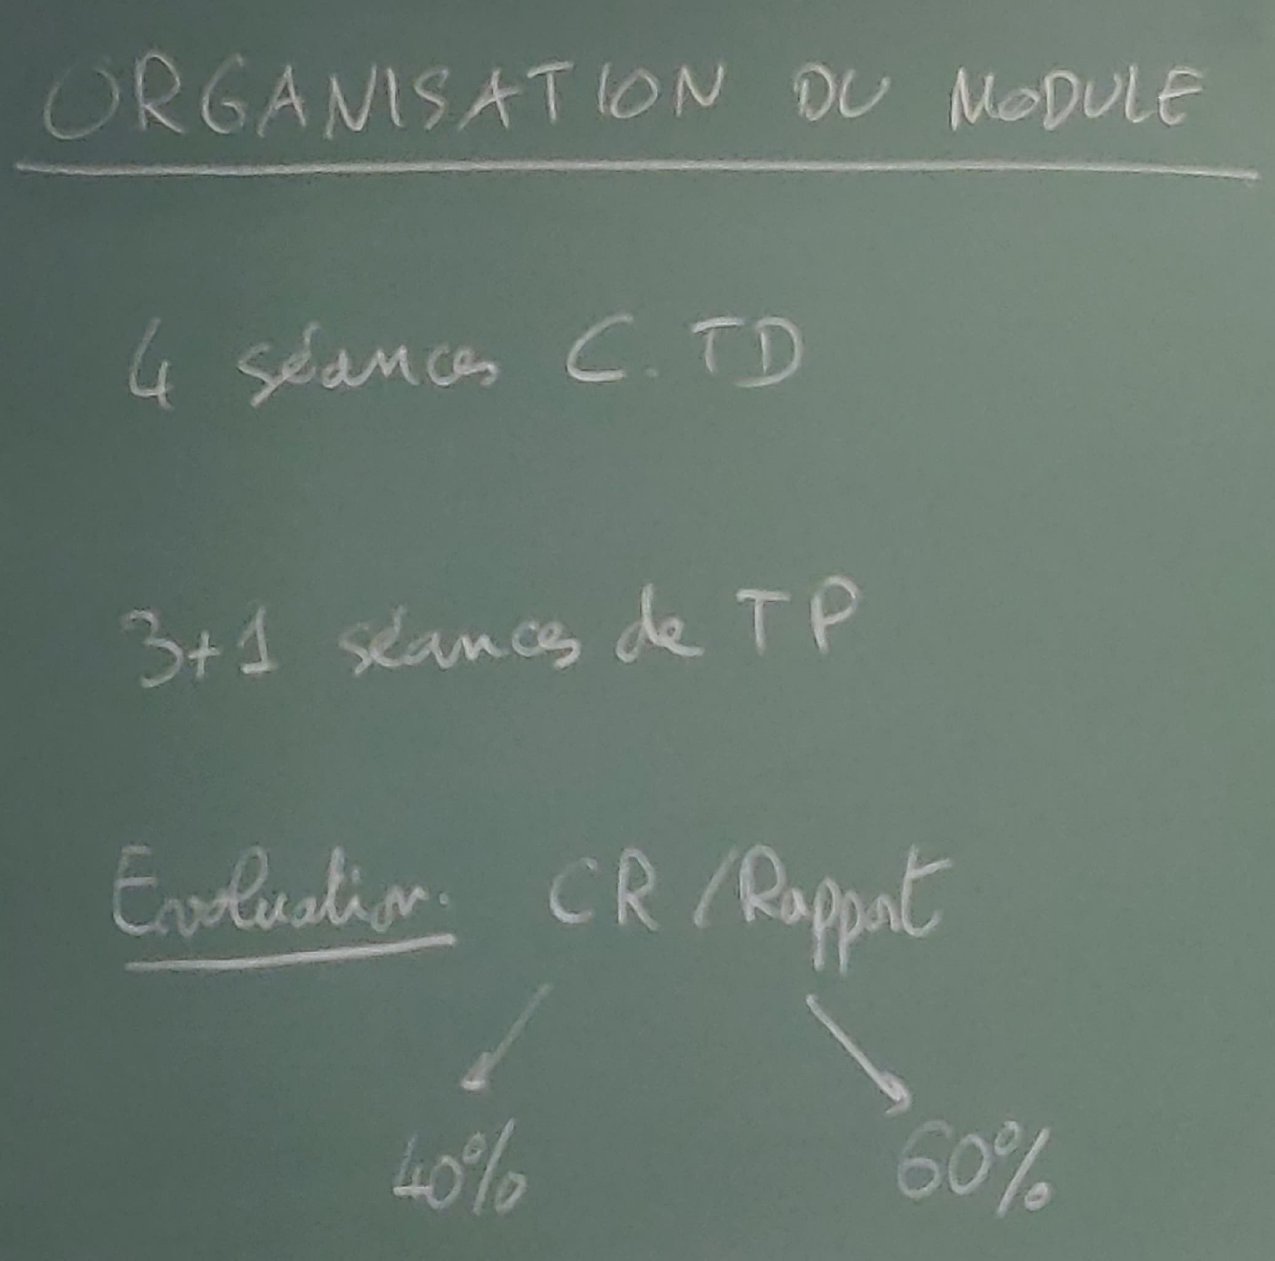 ORGANISATION DU MODULE
4 séances C.TD
3+1 séances de TP
Evaluation. CR / Rapport
40% 60%